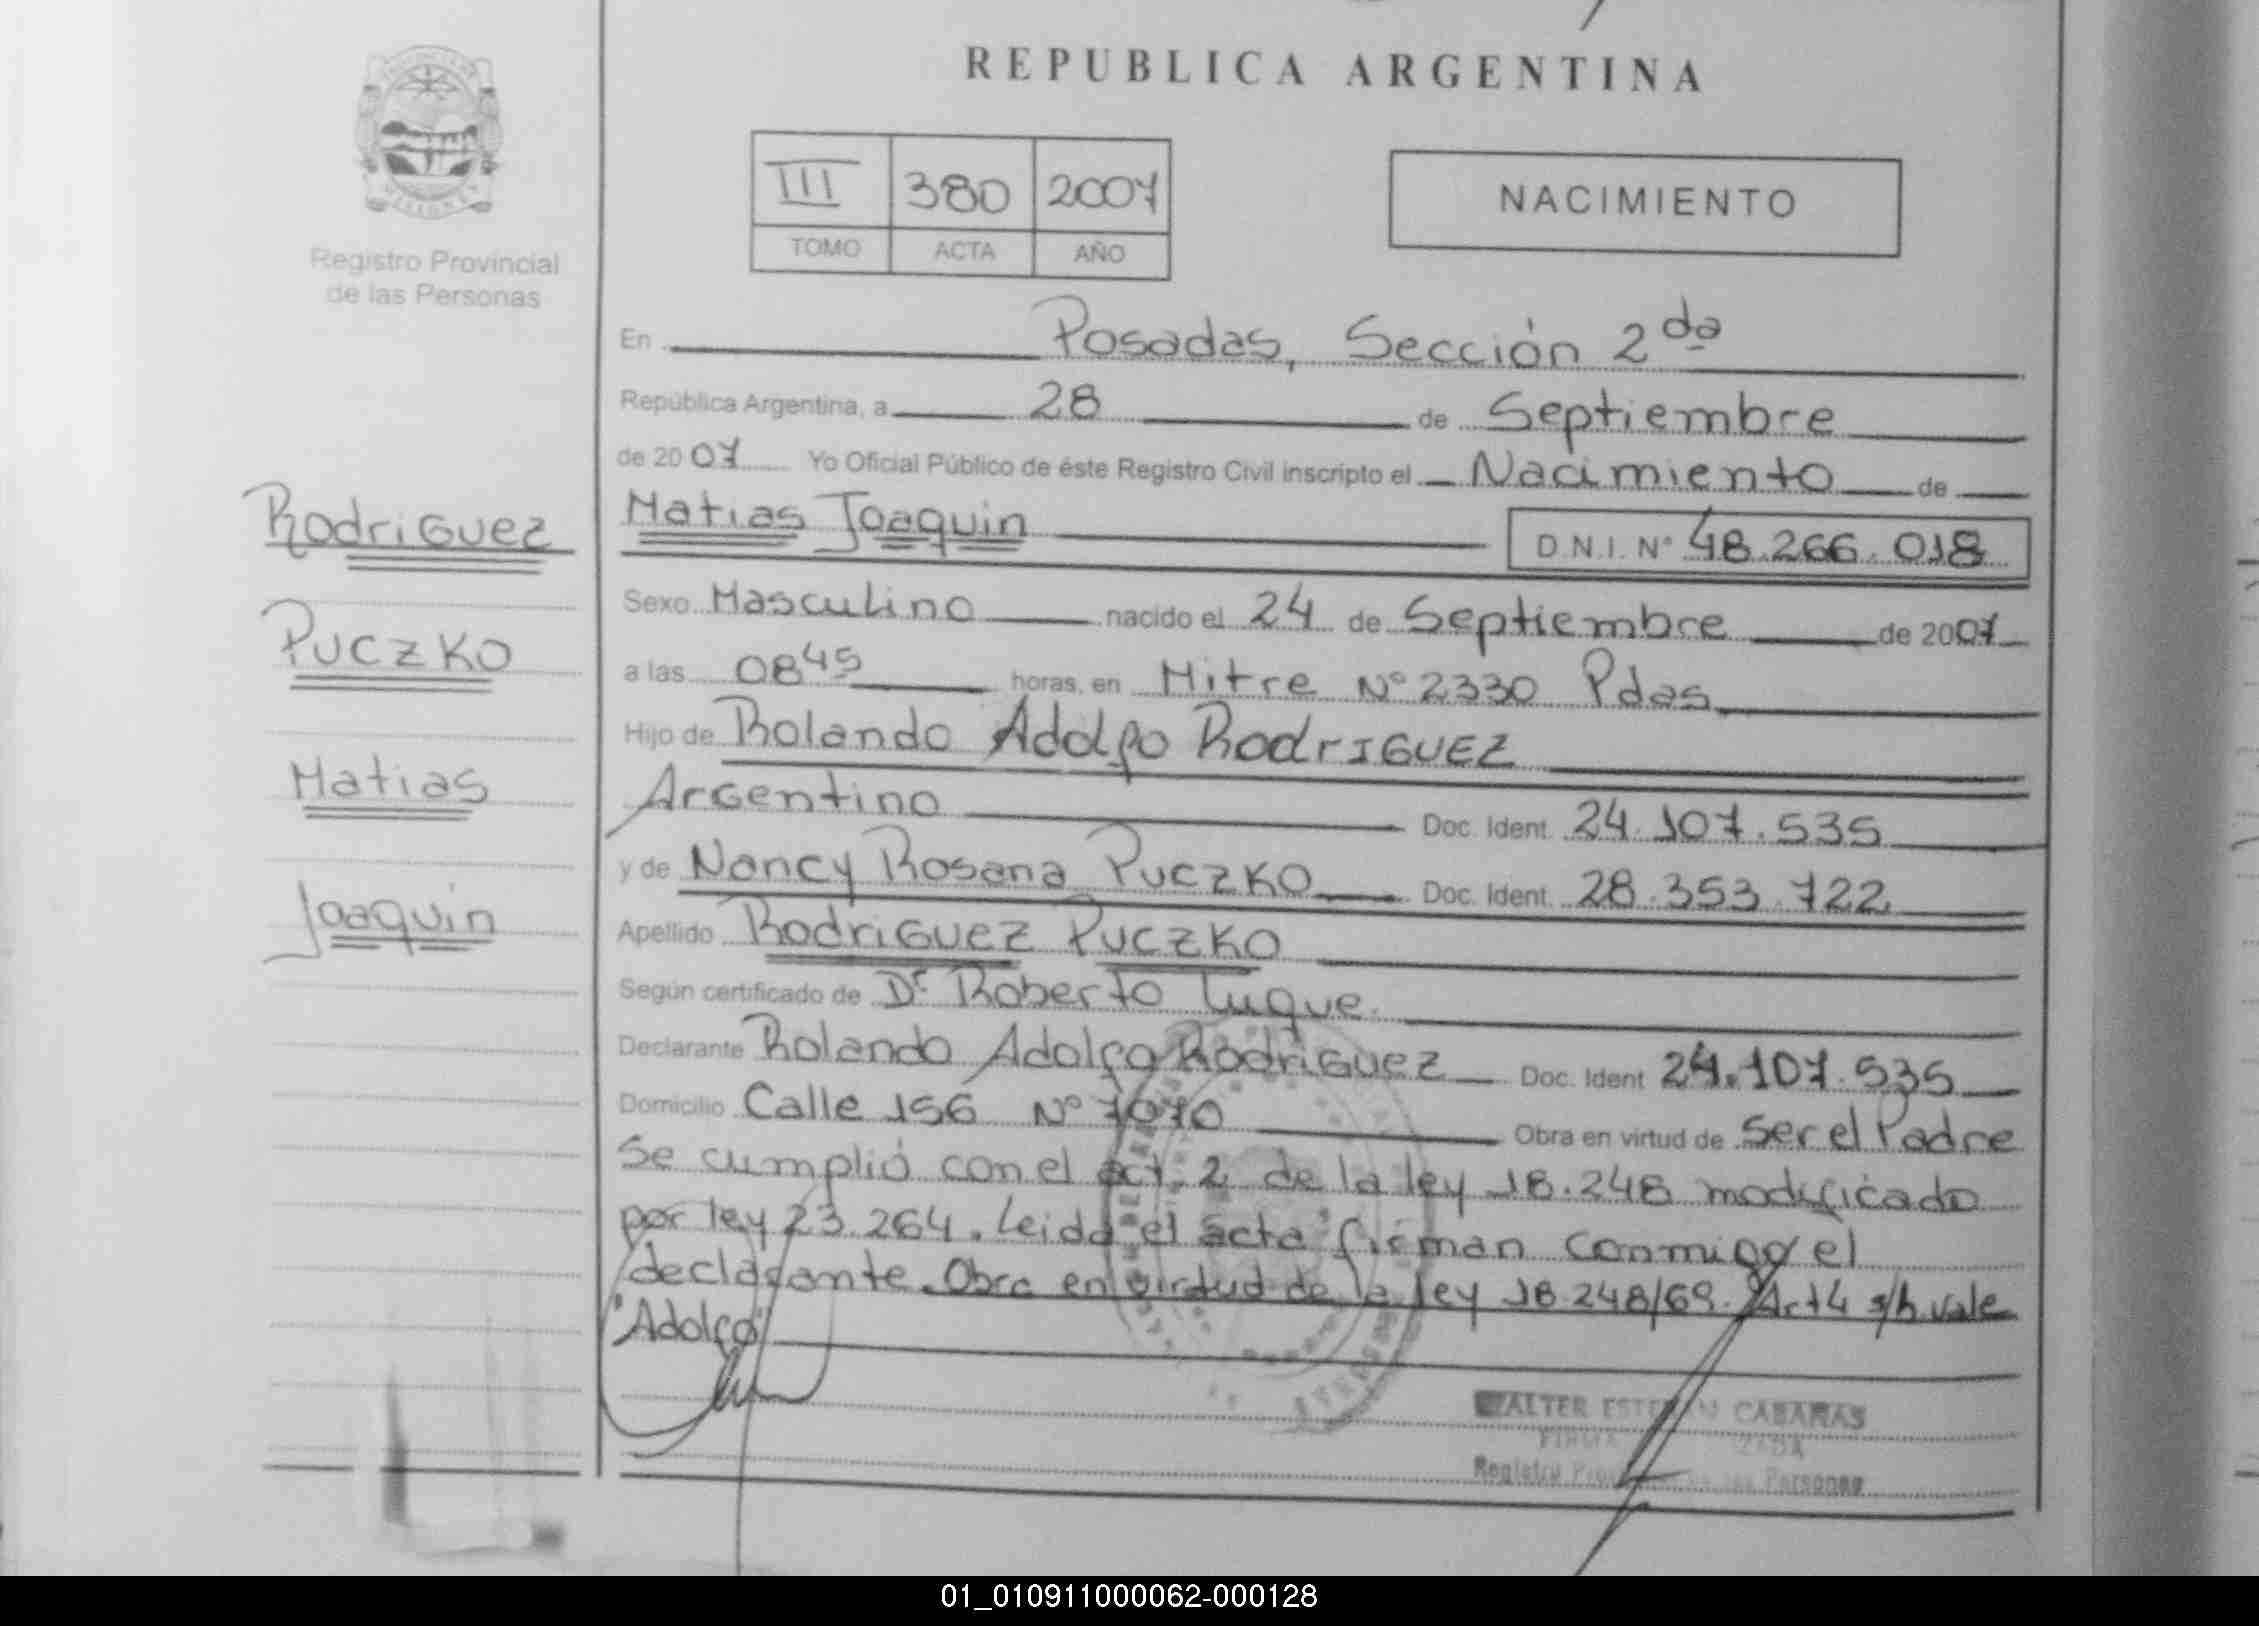 REPUBLICA ARGENTINA
PROVINCIA
MISIONES
Registro Provincial
de las Personas
III 380 2007
TOMO ACTA AÑO
NACIMIENTO
En Posadas, Sección 2da
República Argentina, a 28 de Septiembre
de 2007 Yo Oficial Público de éste Registro Civil inscripto el Nacimiento de
Rodriguez
Puczko
Matias
Joaquin
Matias Joaquin D.N.I. Nº 48.266.018
Sexo Masculino nacido el 24 de Septiembre de 2007
a las 08 45 horas, en Mitre Nº 2330 Pdas
Hijo de Rolando Adolfo RodrIGUEZ
Argentino Doc. Ident. 24.107.535
y de Nancy Rosana Puczko Doc. Ident. 28.353.722
Apellido Rodriguez Puczko
Según certificado de Dr Roberto Luque.
Declarante Rolando Adolfo Rodriguez Doc. Ident 24.107.535
Domicilio Calle 156 Nº 7070 Obra en virtud de Ser el Padre
Se cumplió con el act. 2 de la ley 18.248 modificado
por ley 23.264. Leida el acta firman conmigo el
declarante. Obra en virtud de la ley 18.248/69. Art 4 s/h. vale
"Adolfo"
WALTER ESTEBAN CABAÑAS
FIRMA
Registro Provincial de las Personas
01_010911000062-000128